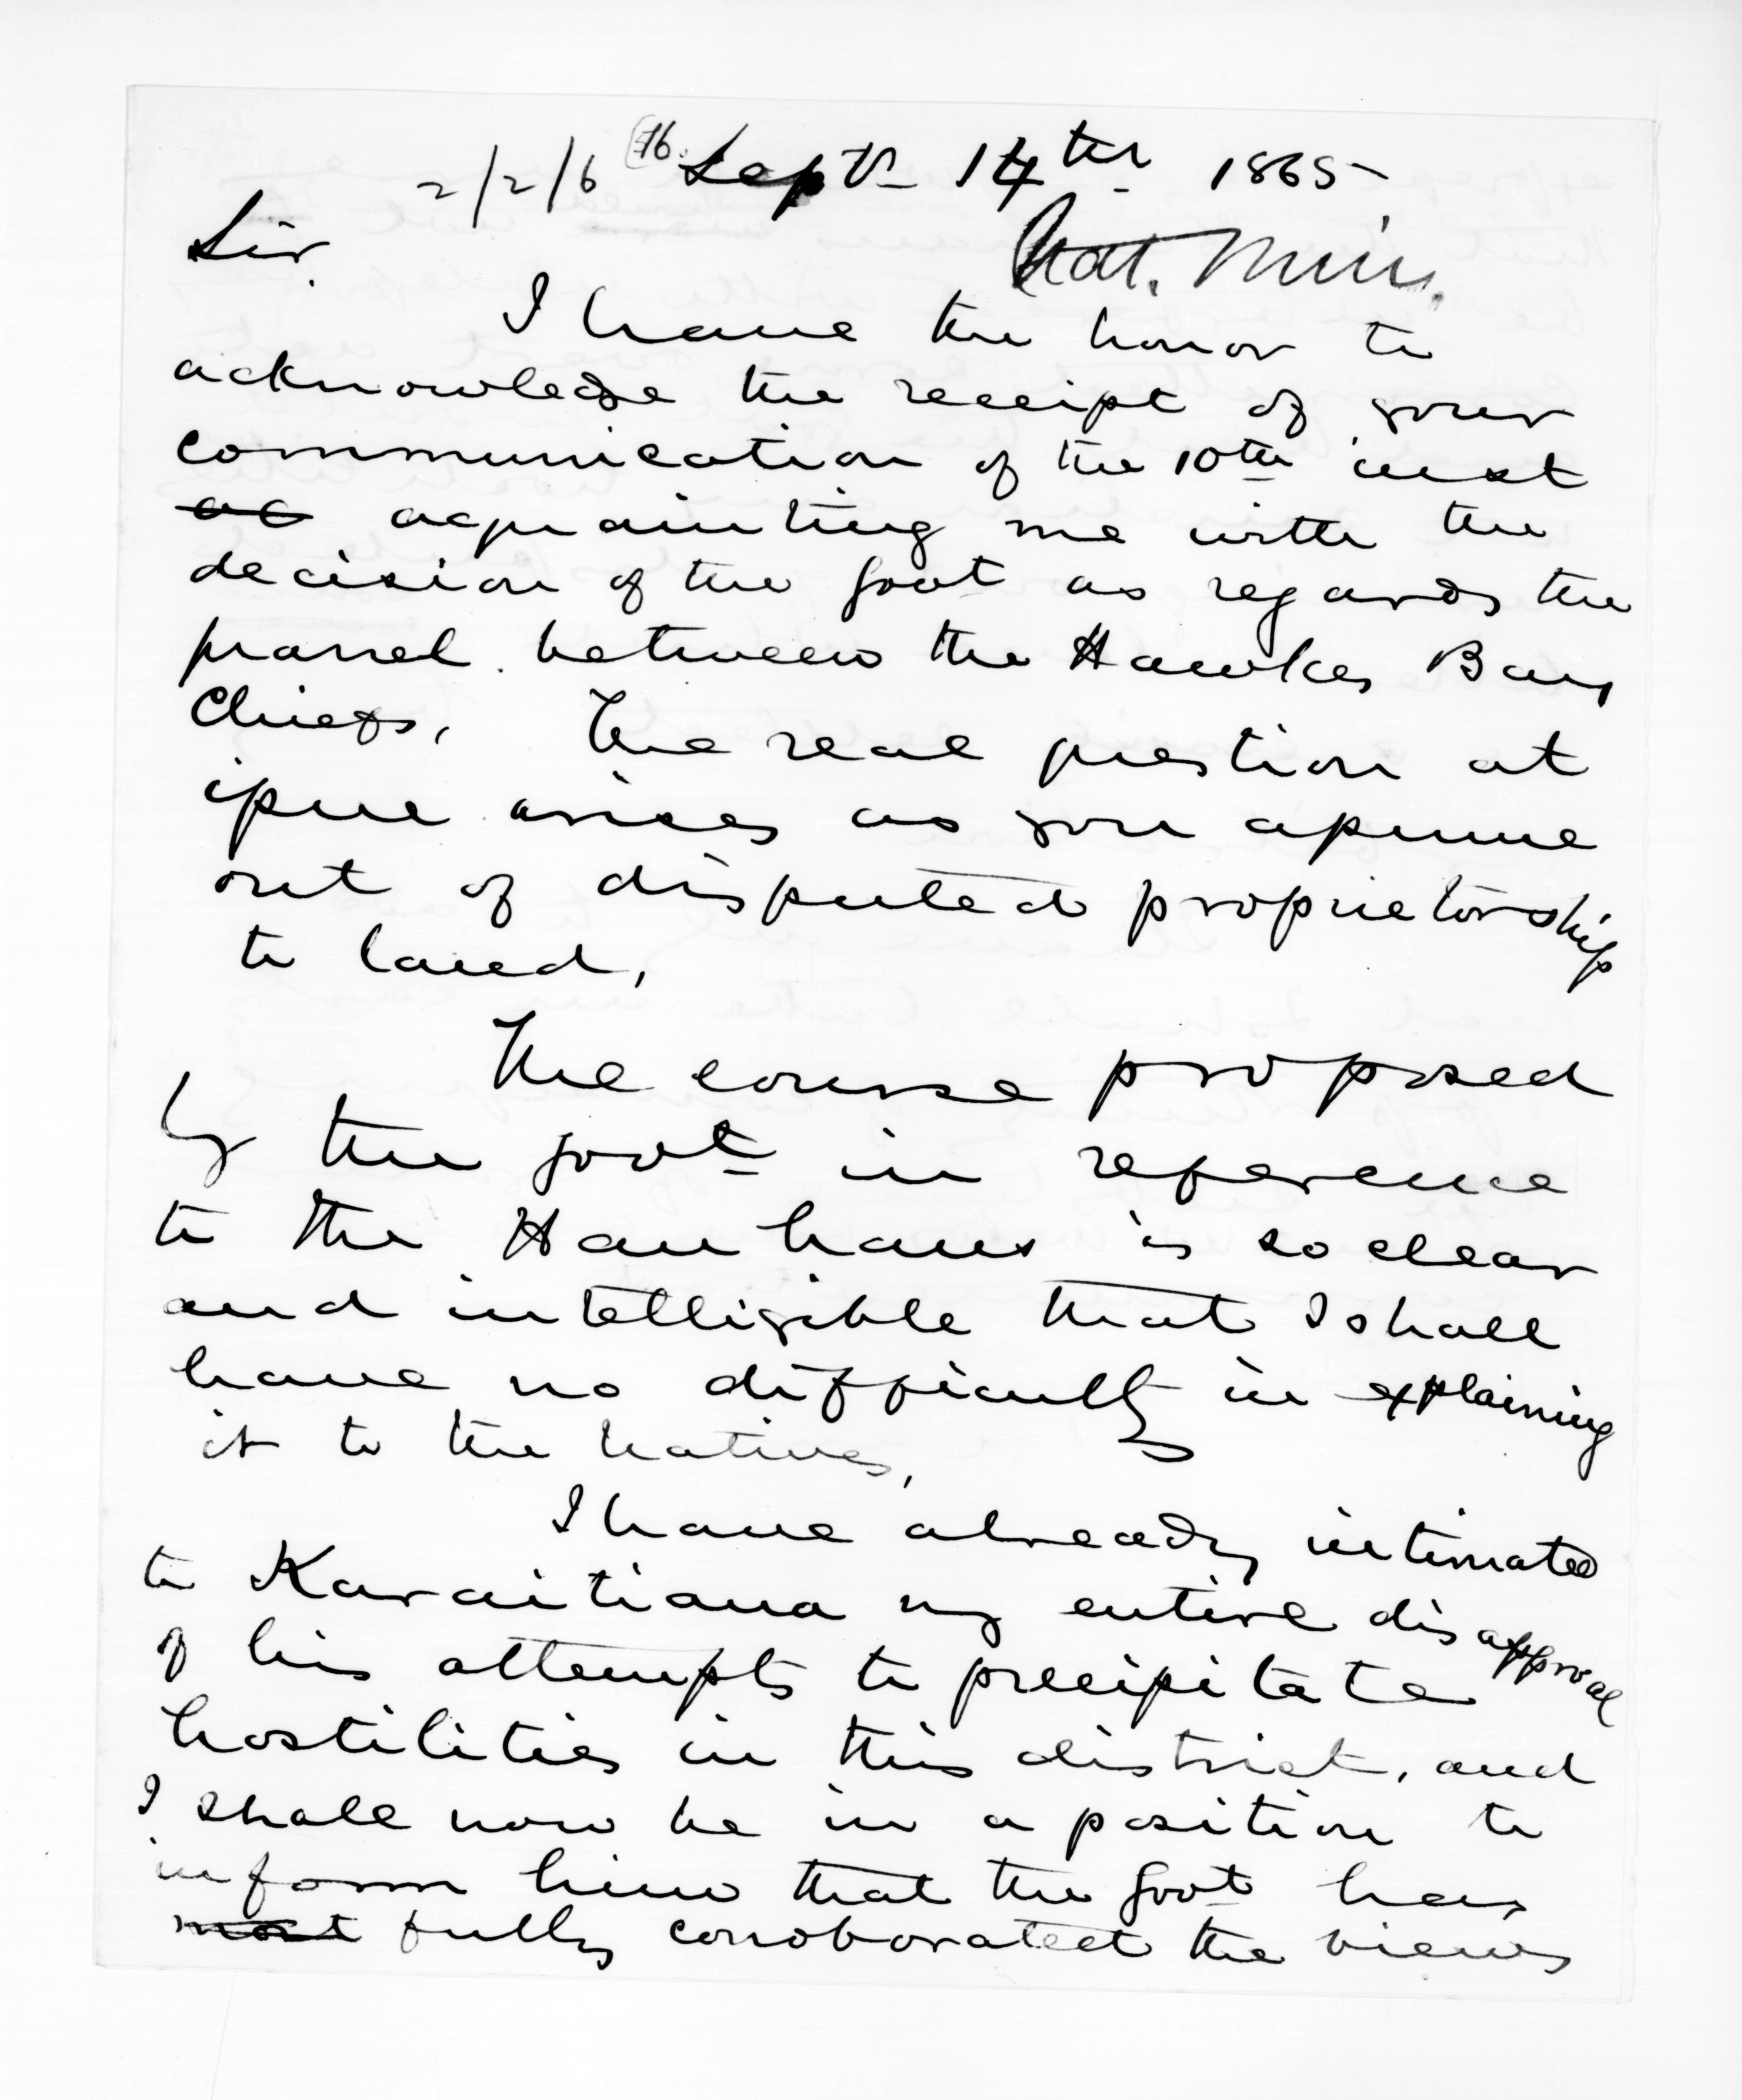 2/2/6 (76. Septr 14th 1865
Sir. Nat. Min.
I have the honor to
acknowledge the receipt of your
communication of the 10th inst
ac acquainting me with the
decision of the Govt as regards the
quarrel between the Hawkes Bay
Chiefs, The real question at
issue arises as you assume
out of disputed proprietorship
to land,
The course proposed
by the Govt in reference
to the Hau haus is so clear
and intelligible that I shall
have no difficulty in explaining
it to the natives,
I have already intimated
to Karaitiana my entire disapproval
of his attempts to precipitate
hostilities in this district, and
I shall now be in a position to
inform him that the Govt has
most fully corroborated the views